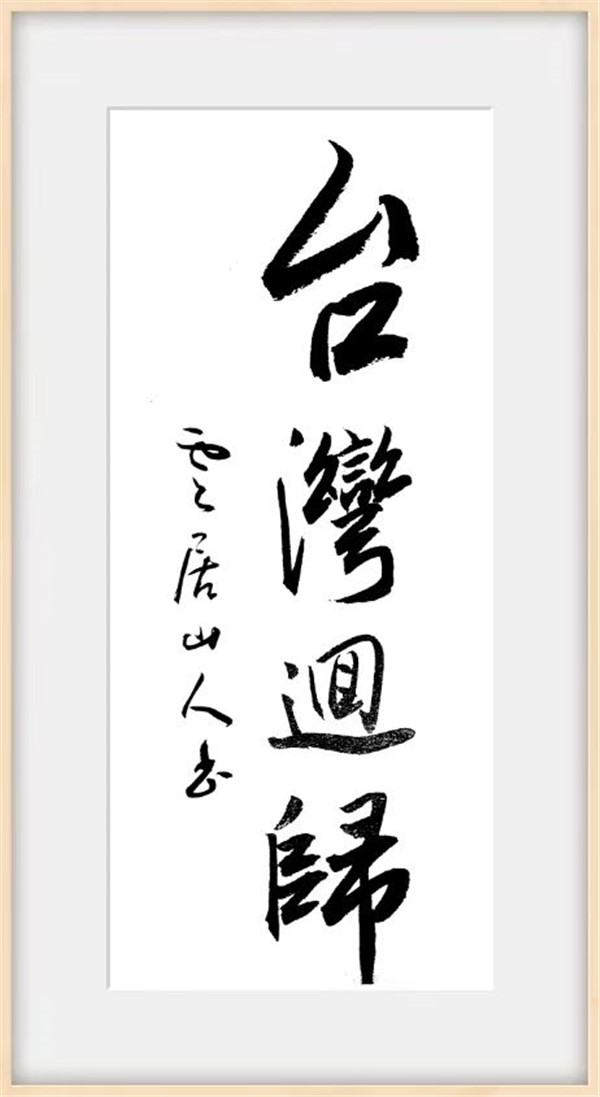 台灣迴歸
雲居山人书